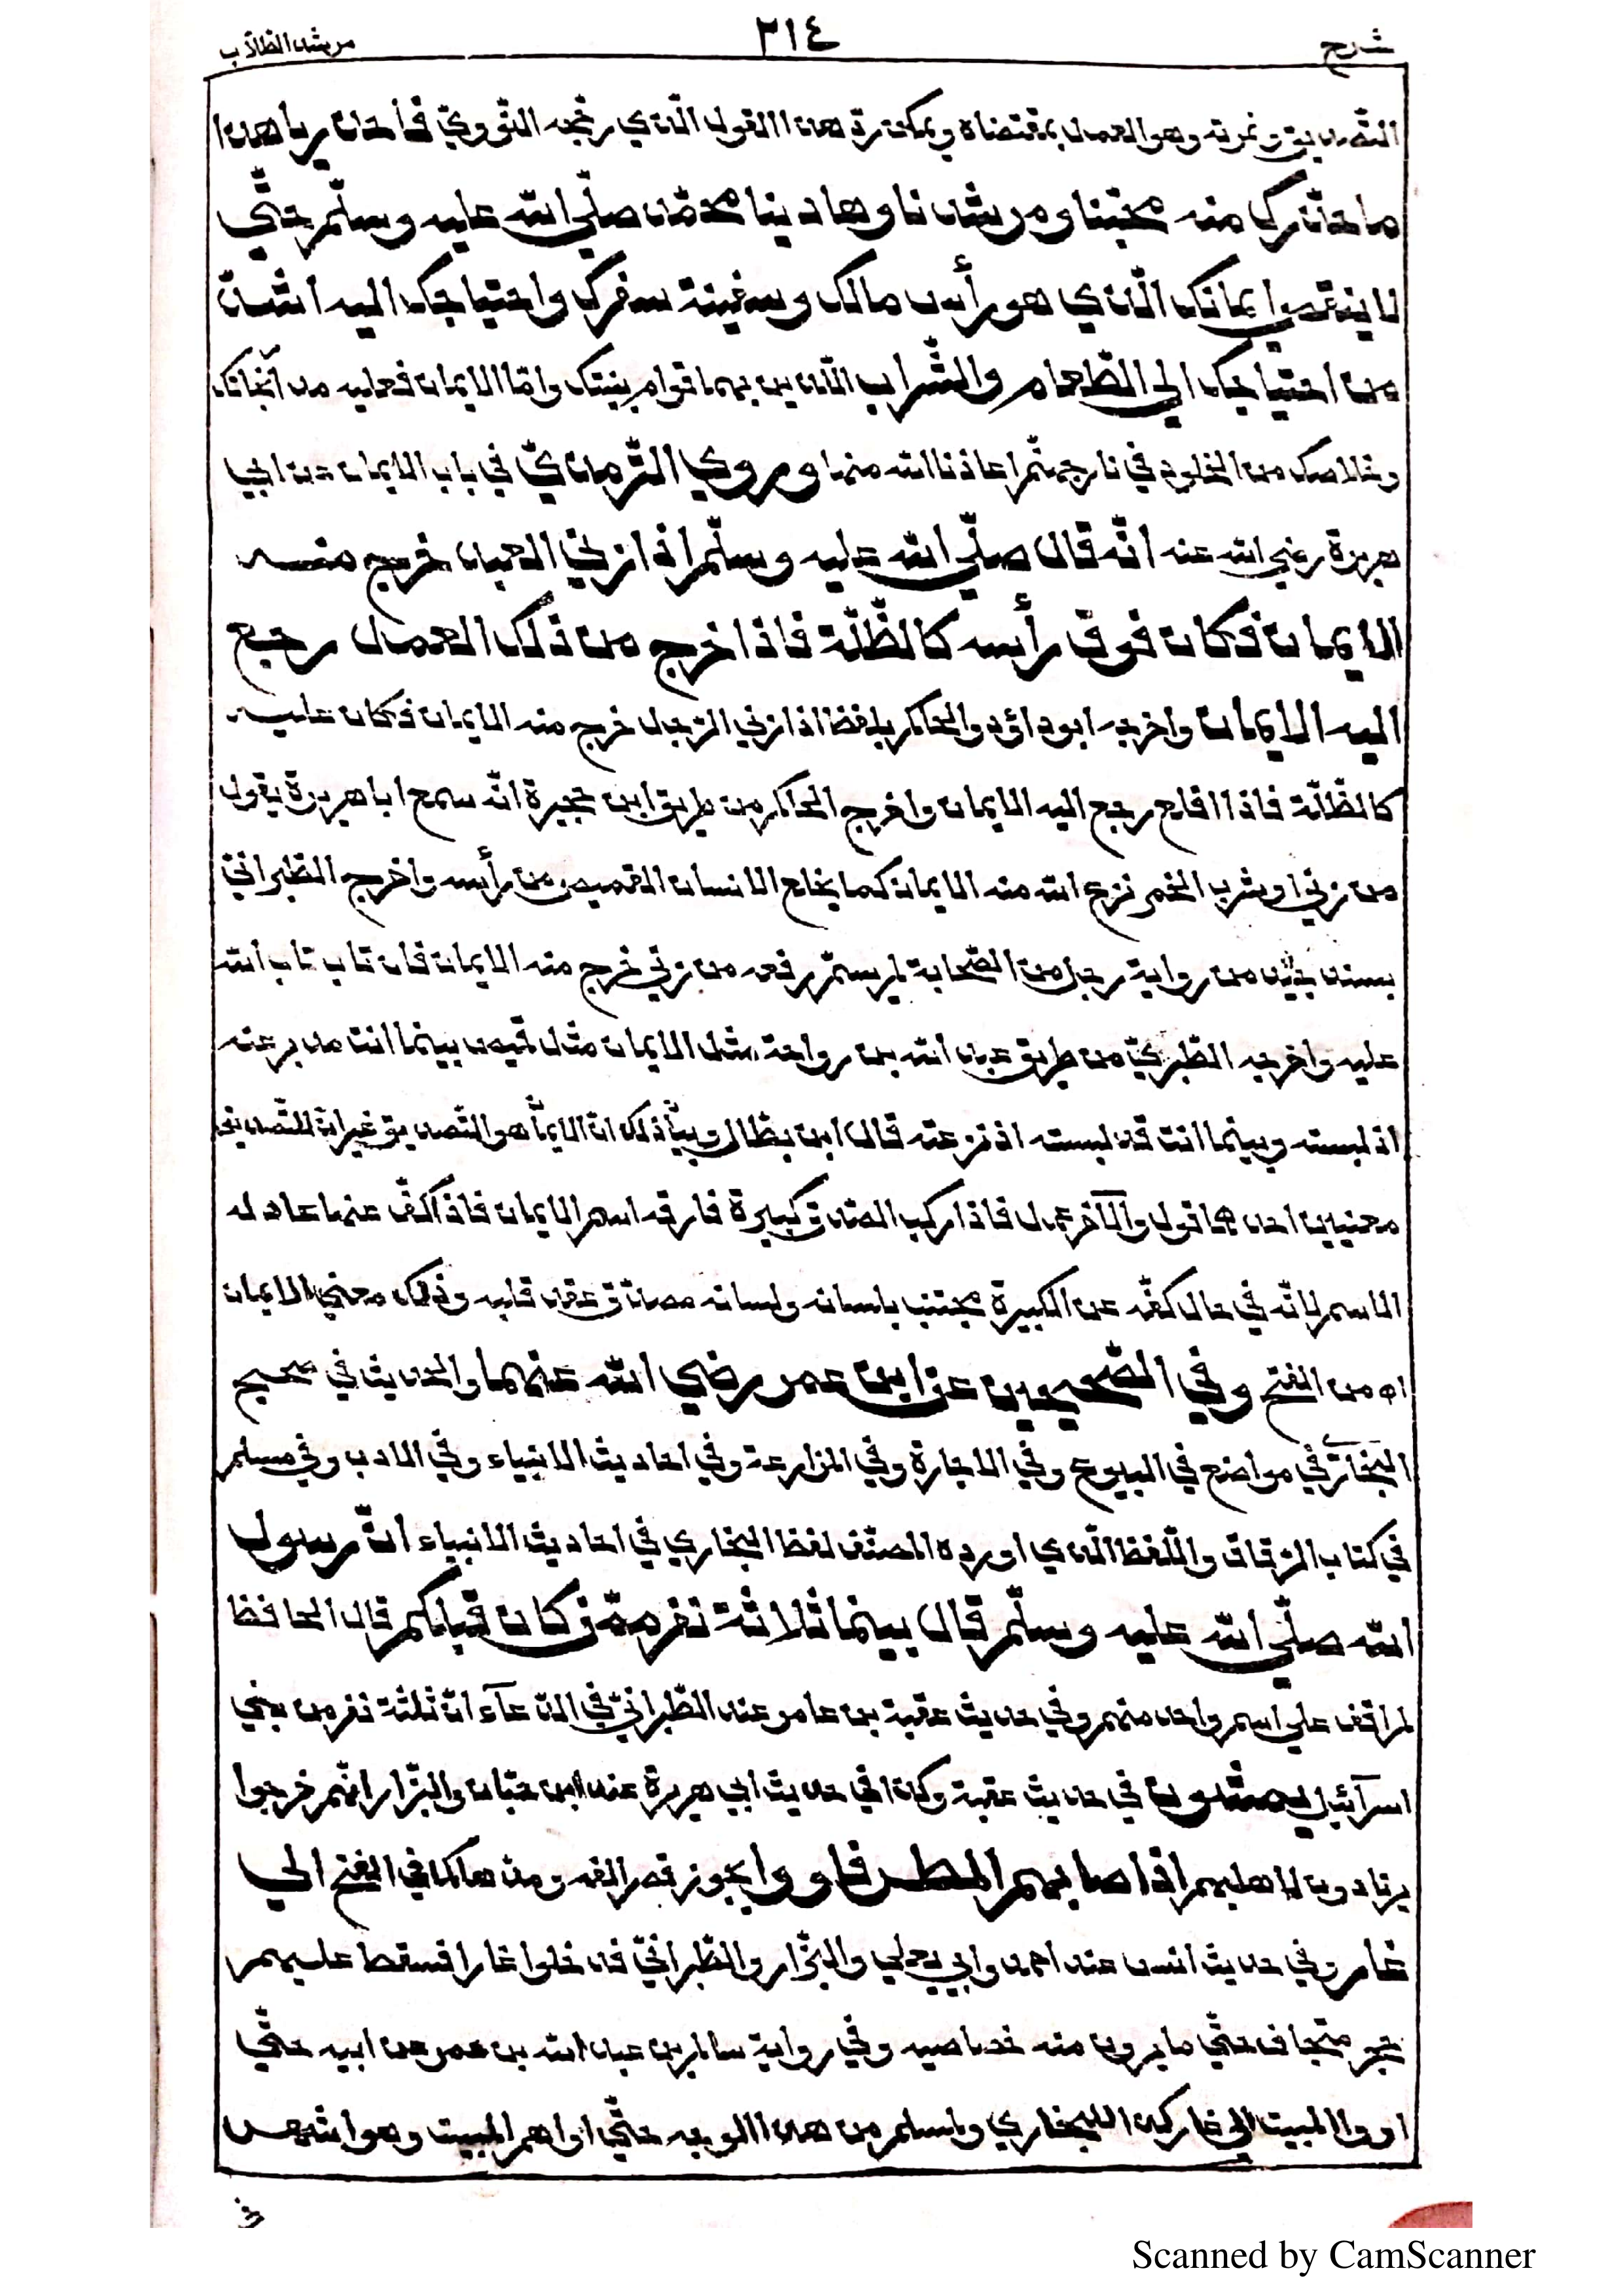 شرح ٣١٤ مرشد الطلاب
التصديق وثمرته وهو العمل بمقتضاه ويمكن رد هذا القول الذي رجحه النووي فاحذر يا هذا
ما حذرك منه محبنا ومرشدنا وهادينا محمد صلّي الله عليه وسلّم حتّي
لا ينقص ايمانك الّذي هو رأس مالك وسفينة سفرك واحتياجك اليه اشدّ
من احتياجك الي الطّعام والشّراب الّذين بهما قوام بنيتك وامّا الايمان فعليه مدار نجاتك
وخلاصك من الخلود في نار جهنّم اعاذنا الله منها وروي التّرمذيّ في باب الايمان عن ابي
هريرة رضي الله عنه انّه قال صلّي الله عليه وسلّم اذا زني العبد خرج منه
الايمان فكان فوق رأسه كالظّلّة فاذا خرج من ذلك العمل رجع
اليه الايمان واخرجه ابو داؤد والحاكم بلفظ اذا زني الرّجل خرج منه الايمان فكان عليه
كالظّلّة فاذا اقلع رجع اليه الايمان واخرج الحاكم من طريق ابن حجيرة انّه سمع ابا هريرة يقول
من زني او شرب الخمر نزع الله منه الايمان كما يخلع الانسان القميص من رأسه واخرج الطّبرانيّ
بسند جيّد من رواية رجل من الصّحابة لم يسمّ رفعه من زني خرج منه الايمان فان تاب تاب الله
عليه واخرجه الطّبريّ من طريق عبد الله بن رواحة مثل الايمان مثل قميص بينما انت مدبر عنه
اذ لبسته وبينما انت قد لبسته اذ نزعته قال ابن بطّال وبيان ذلك انّ الايمان هو التّصديق غير انّ للتّصديق
معنيين احدهما قول والآخر عمل فاذا ركب المصدّق كبيرة فارقه اسم الايمان فاذا كفّ عنها عاد له
الاسم لانّه في حال كفّه عن الكبيرة مجتنب بلسانه ولسانه مصدّق عقد قلبه وذلك معني الايمان
اه من الفتح وفي الصّحيحين عن ابن عمر رضي الله عنهما والحديث في صحيح
البخاريّ في مواضع في البيوع وفي الاجارة وفي المزارعة وفي احاديث الانبياء وفي الادب وفي مسلم
في كتاب الرّقاق واللّفظ الّذي اورده المصنّف لفظ البخاري في احاديث الانبياء انّ رسول
الله صلّي الله عليه وسلّم قال بينما ثلاثة نفر ممّن كان قبلكم قال الحافظ
لم اقف علي اسم واحد منهم وفي حديث عقبة بن عامر عند الطّبرانيّ في الدّعآء انّ ثلثة نفر من بني
اسرآئيل يمشون في حديث عقبة وكذا في حديث ابي هريرة عند ابن حبّان والبزّار انّهم خرجوا
يرتادون لاهليهم اذ اصابهم المطر فاووا يجوز قصر الفه ومدّها كما في الفتح الي
غار وفي حديث انس عند احمد وابي يعلي والبزّار والطّبرانيّ فدخلوا غارا فسقط عليهم
حجر متجاف حتّي ما يرون منه خصاصه وفي رواية سالم بن عبد الله بن عمر عن ابيه حتّي
اووا المبيت الي غار كذا للبخاري ولمسلم من هذا الوجه حتّي اواهم المبيت وهو اشهر
Scanned by CamScanner